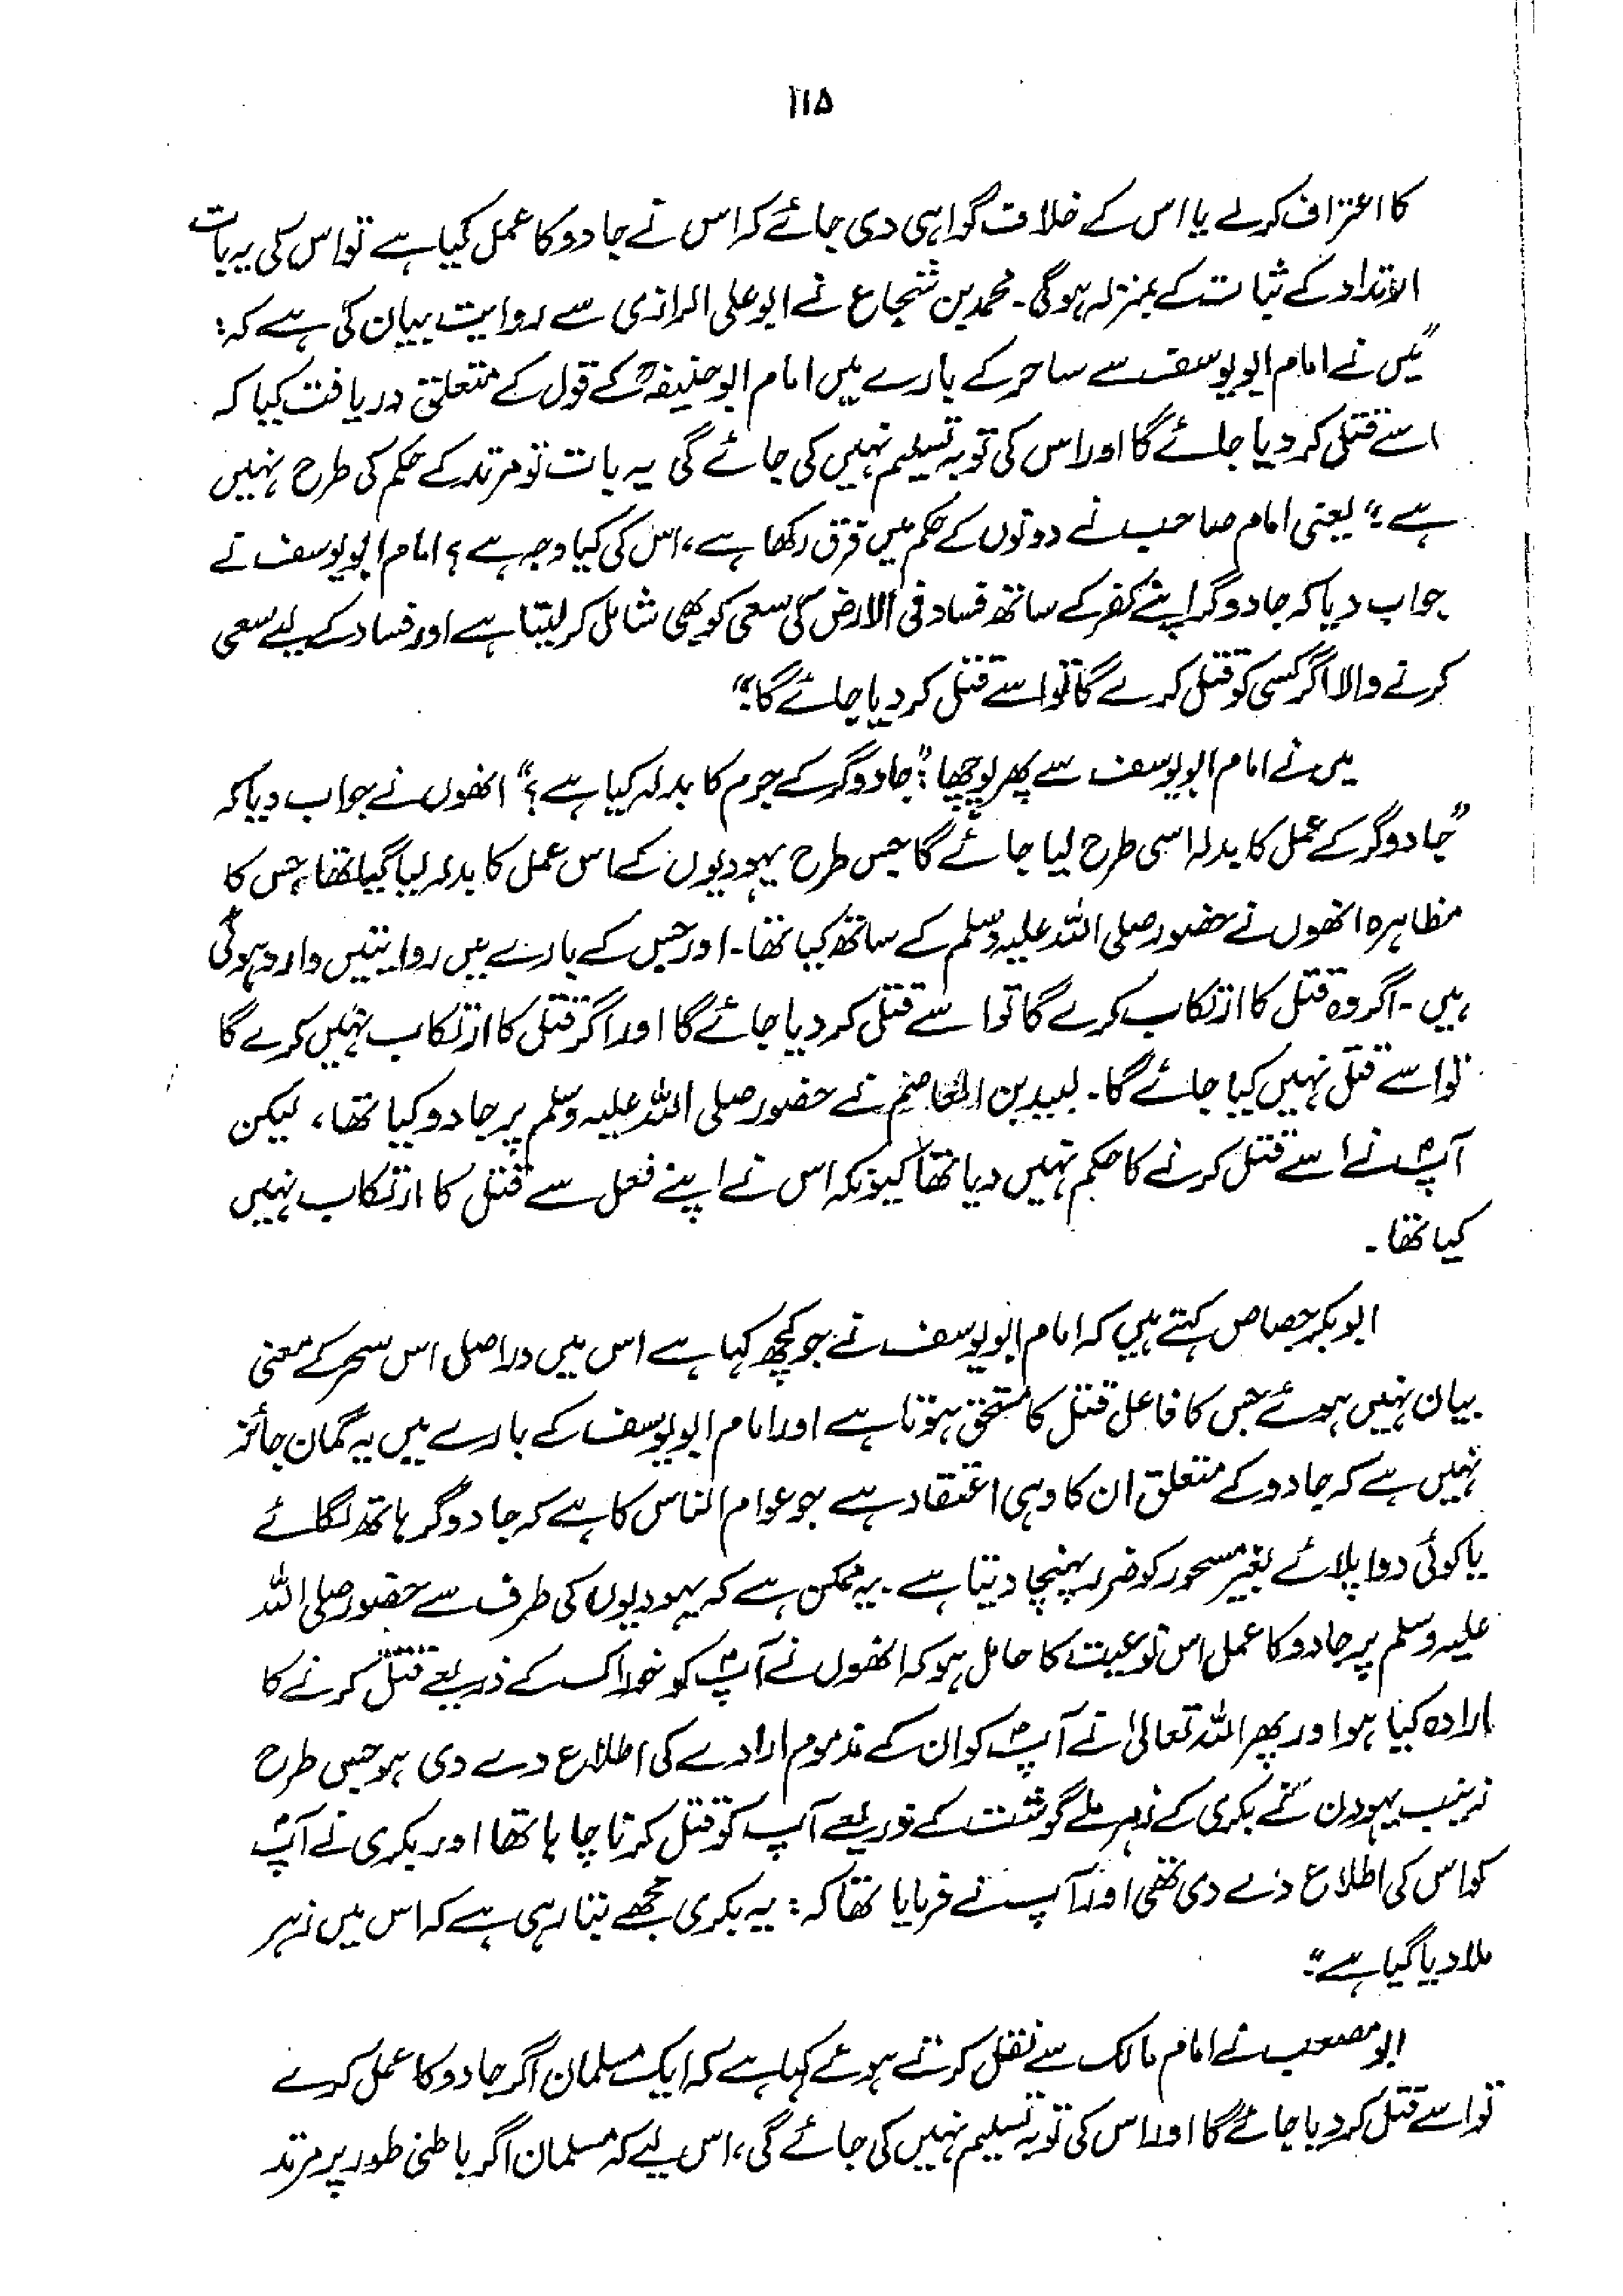 ۱۱۵
کا اعتراف کرلے یا اس کے خلاف گواہی دی جائے کہ اس نے جادو کا عمل کیا ہے تو اس کی یہ بات
الارتداد کے ثبات کے بمنزلہ ہوگی۔ محمد بن شجاع نے ابو علی الرازی سے روایت بیان کی ہے کہ:
"میں نے امام ابو یوسف سے ساحر کے بارے میں امام ابو حنیفہؒ کے قول کے متعلق دریافت کیا کہ
اسے قتل کر دیا جائے گا اور اس کی توبہ تسلیم نہیں کی جائے گی یہ بات تو مرتد کے حکم کی طرح نہیں
ہے" یعنی امام صاحب نے دونوں کے حکم میں فرق رکھا ہے، اس کی کیا وجہ ہے؟ امام ابو یوسف نے
جواب دیا کہ جادوگر اپنے کفر کے ساتھ فساد فی الارض کی سعی کو بھی شامل کر لیتا ہے اور فساد کے لیے سعی
کرنے والا اگر کسی کو قتل کرے گا تو اسے قتل کر دیا جائے گا"
میں نے امام ابو یوسف سے پھر پوچھا: "جادوگر کے جرم کا بدلہ کیا ہے؟" انھوں نے جواب دیا کہ
"جادوگر کے عمل کا بدلہ اسی طرح لیا جائے گا جس طرح یہودیوں کے اس عمل کا بدلہ لیا گیا تھا، جس کا
مظاہرہ انھوں نے حضور صلی اللہ علیہ وسلم کے ساتھ کیا تھا۔ اور جس کے بارے میں روایتیں وارد ہوئی
ہیں۔ اگر وہ قتل کا ارتکاب کرے گا تو اسے قتل کر دیا جائے گا اور اگر قتل کا ارتکاب نہیں کرے گا
تو اسے قتل نہیں کیا جائے گا۔ لبید بن نے حضور صلی اللہ علیہ وسلم پر جادو کیا تھا، لیکن
آپؐ نے اسے قتل کرنے کا حکم نہیں دیا تھا کیونکہ اس نے اپنے فعل سے قتل کا ارتکاب نہیں
کیا تھا۔
ابوبکر جصاص کہتے ہیں کہ امام ابو یوسف نے جو کچھ کہا ہے اس میں دراصل اس سحر کے معنی
بیان نہیں ہوئے جس کا فاعل قتل کا مستحق ہوتا ہے اور امام ابو یوسف کے بارے میں یہ گمان جائز
نہیں ہے کہ جادو کے متعلق ان کا وہی اعتقاد ہے جو عوام الناس کا ہے کہ جادوگر ہاتھ لگائے
یا کوئی دوا پلائے بغیر مسحور کو ضرر پہنچا دیتا ہے۔ یہ ممکن ہے کہ یہودیوں کی طرف سے حضور صلی اللہ
علیہ وسلم پر جادو کا عمل اس نوعیت کا حامل ہو کہ انھوں نے آپؐ کو خوراک کے ذریعے قتل کرنے کا
ارادہ کیا ہو اور پھر اللہ تعالیٰ نے آپؐ کو ان کے مذموم ارادے کی اطلاع دے دی ہو جس طرح
زینب یہودن نے بکری کے زہر ملے گوشت کے ذریعے آپ کو قتل کرنا چاہا تھا اور بکری نے آپؐ
کو اس کی اطلاع دے دی تھی اور آپ نے فرمایا تھا کہ: یہ بکری مجھے بتا رہی ہے کہ اس میں زہر
ملا دیا گیا ہے"۔
ابو مصعب نے امام مالک سے نقل کرتے ہوئے کہا ہے کہ ایک مسلمان اگر جادو کا عمل کرے
تو اسے قتل کر دیا جائے گا اور اس کی توبہ تسلیم نہیں کی جائے گی، اس لیے کہ مسلمان اگر باطنی طور پر مرتد